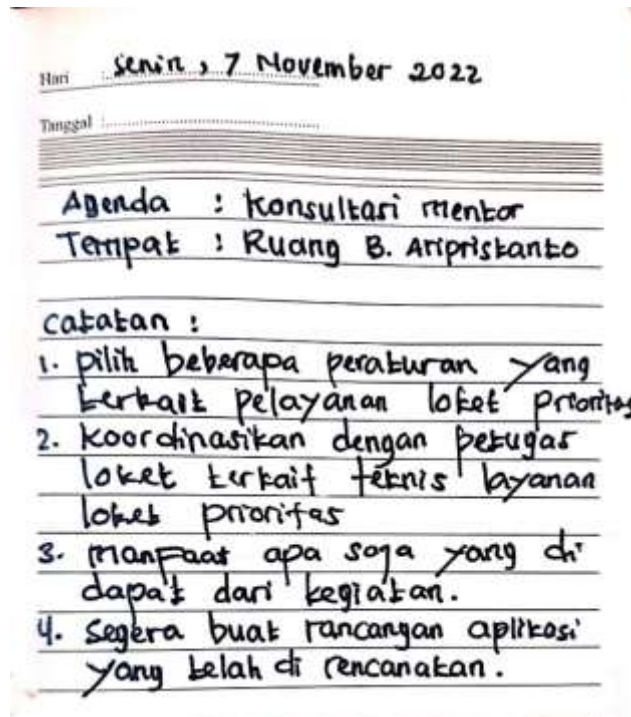 Hari : Senin, 7 November 2022
Tanggal :
Agenda : Konsultasi mentor
Tempat : Ruang B. Aripristanto
catatan :
1. pilih beberapa peraturan yang
terkait pelayanan loket prioritas
2. Koordinasikan dengan petugas
loket terkait teknis layanan
loket prioritas
3. Manfaat apa saja yang di
dapat dari kegiatan.
4. Segera buat rancangan aplikasi
yang telah di rencanakan.